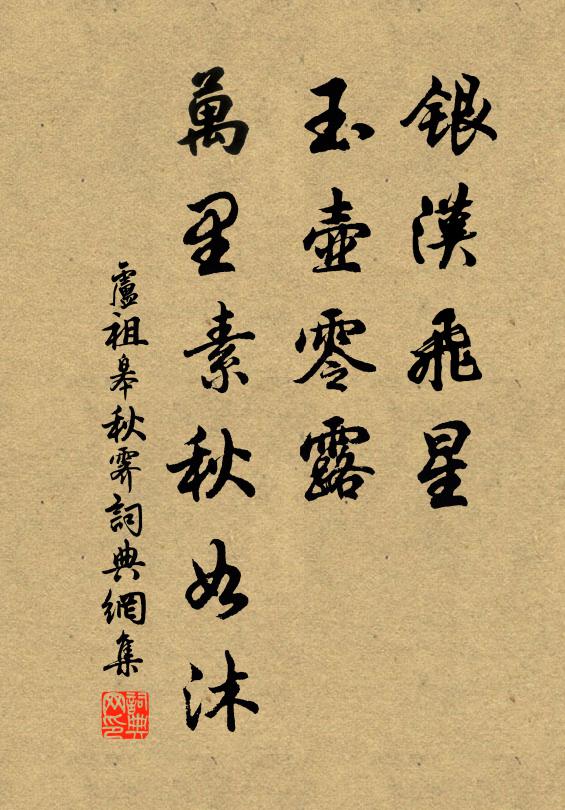 銀漢飛星
玉壺零露
萬里素秋如沐
盧祖皋秋霽詞典網集
詞典网印